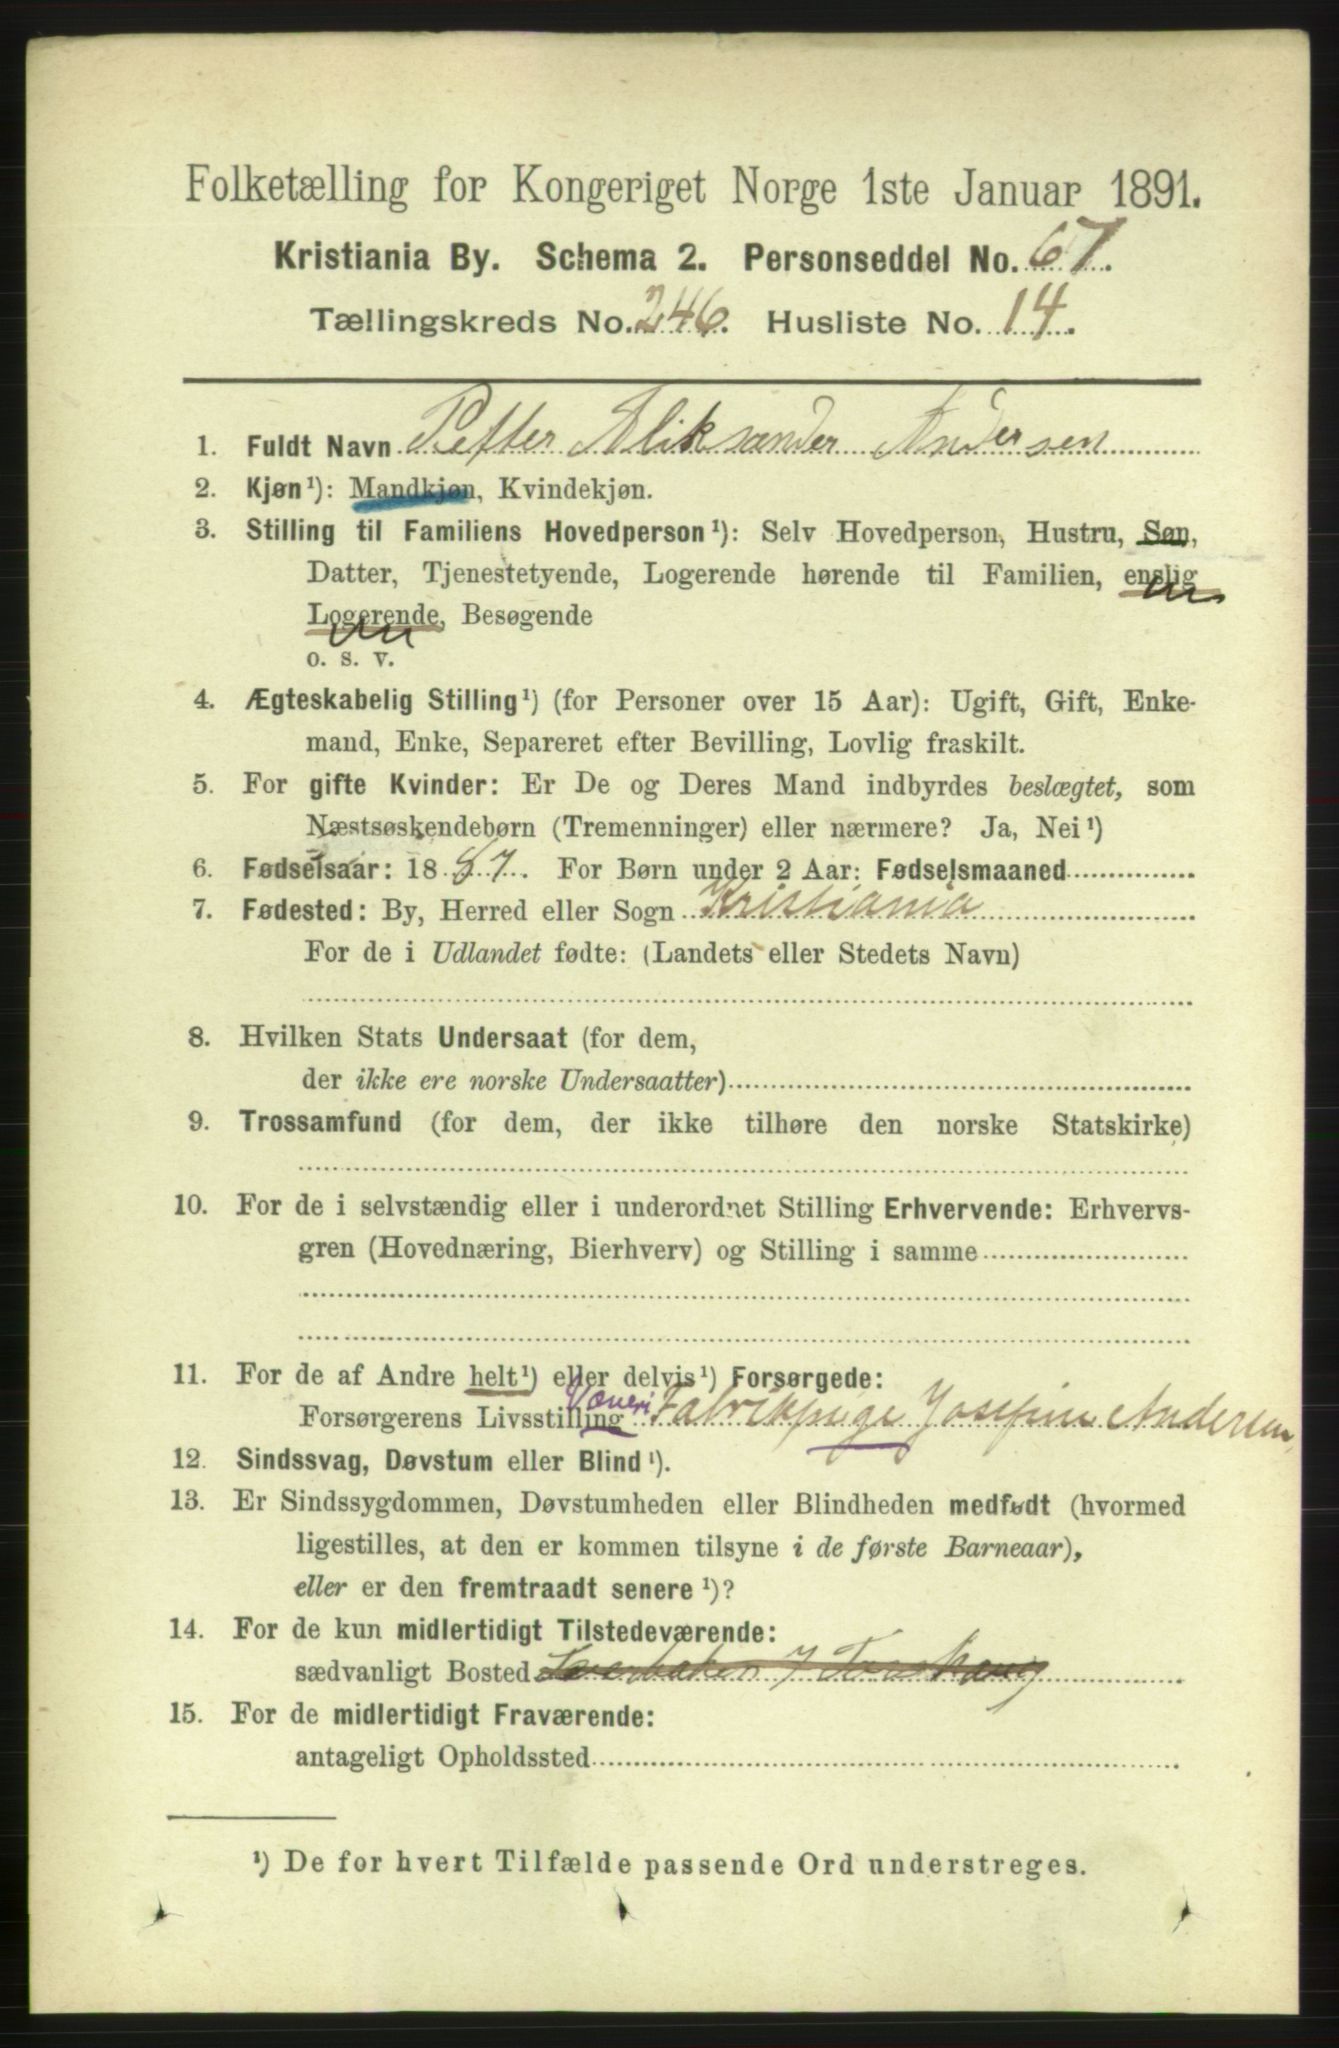 Folketælling for Kongeriget Norge 1ste Januar 1891.
Kristiania By. Schema 2. Personseddel No. 67.
Tællingskreds No. 246. Husliste No. 14.
1. Fuldt Navn Petter Aliksander Andersen
2. Kjøn¹): Mandkjøn, Kvindekjøn.
3. Stilling til Familiens Hovedperson¹): Selv Hovedperson, Hustru, Søn,
Datter, Tjenestetyende, Logerende hørende til Familien, enslig
Logerende, Besøgende
o. s. v.
4. Ægteskabelig Stilling¹) (for Personer over 15 Aar): Ugift, Gift, Enke-
mand, Enke, Separeret efter Bevilling, Lovlig fraskilt.
5. For gifte Kvinder: Er De og Deres Mand indbyrdes beslægtet, som
Næstsøskendebørn (Tremenninger) eller nærmere? Ja, Nei¹)
6. Fødselsaar: 1887. For Børn under 2 Aar: Fødselsmaaned
7. Fødested: By, Herred eller Sogn Kristiania
For de i Udlandet fødte: (Landets eller Stedets Navn)
8. Hvilken Stats Undersaat (for dem,
der ikke ere norske Undersaatter)
9. Trossamfund (for dem, der ikke tilhøre den norske Statskirke)
10. For de i selvstændig eller i underordnet Stilling Erhvervende: Erhvervs-
gren (Hovednæring, Bierhverv) og Stilling i samme
11. For de af Andre helt¹) eller delvis¹) Forsørgede:
Væveri
Forsørgerens Livsstilling Fabrikpige Josefine Andersen
12. Sindssvag, Døvstum eller Blind¹).
13. Er Sindssygdommen, Døvstumheden eller Blindheden medfødt (hvormed
ligestilles, at den er kommen tilsyne i de første Barneaar),
eller er den fremtraadt senere¹)?
14. For de kun midlertidigt Tilstedeværende:
sædvanligt Bosted
15. For de midlertidigt Fraværende:
antageligt Opholdssted
¹) De for hvert Tilfælde passende Ord understreges.